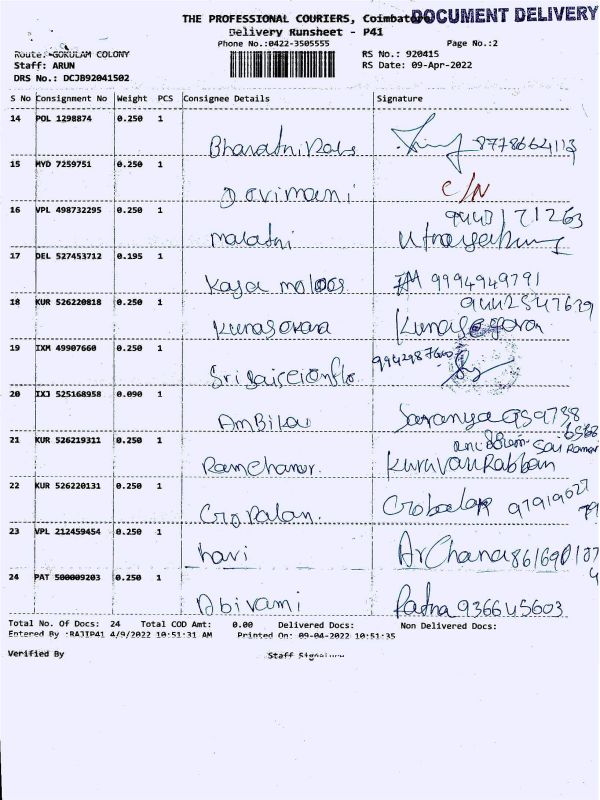 THE PROFESSIONAL COURIERS, Coimbatore
DOCUMENT DELIVERY
Delivery Runsheet - P41
Phone No.:0422-3505555
Page No.:2
Route: GOKULAM COLONY
RS No.: 920415
Staff: ARUN
RS Date: 09-Apr-2022
DRS No.: DCJB92041502
S No Consignment No Weight PCS Consignee Details Signature
14 POL 1298874 0.250 1
8778664113
15 MYD 7259751 0.250 1
Devimani C/N
16 VPL 498732295 0.250 1
9443171263
malathi
17 DEL 527453712 0.195 1
9994949791
18 KUR 526220818 0.250 1
9442547629
Kunasekara Kunasegaran
19 IXM 49907660 0.250 1
20 IXJ 525168958 0.090 1
AmBika Saranya
21 KUR 526219311 0.250 1
Sai Ramar
Ramchander.
22 KUR 526220131 0.250 1
Gopalan. Gobalan
23 VPL 212459454 0.250 1
hari Archana
24 PAT 500009203 0.250 1
Abirami Ratna 9366645603
Total No. Of Docs: 24 Total COD Amt: 0.00 Delivered Docs: Non Delivered Docs:
Entered By :RAJIP41 4/9/2022 10:51:31 AM Printed On: 09-04-2022 10:51:35
Verified By Staff Signature